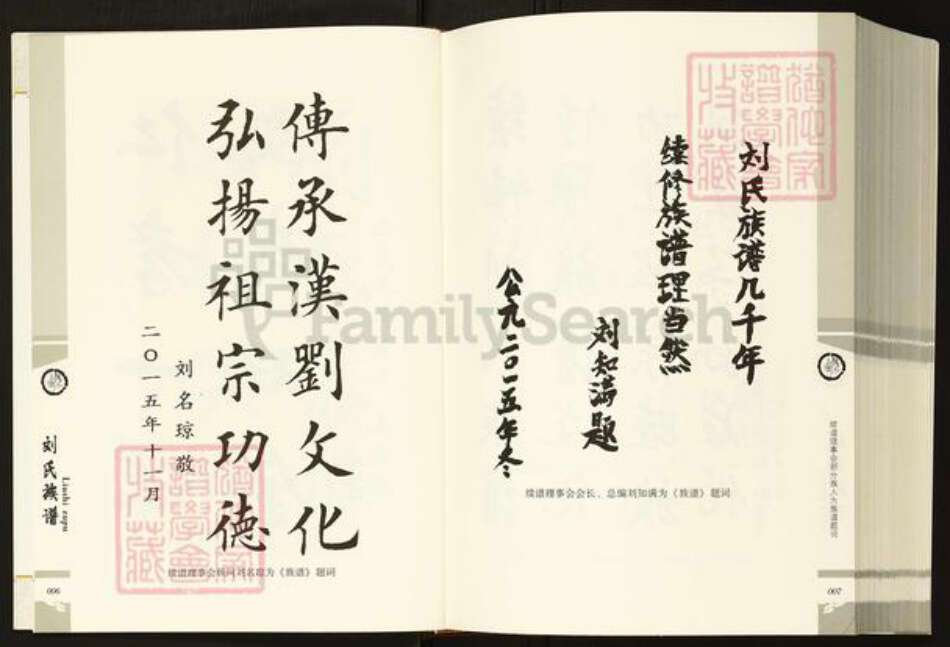 傳承漢劉文化
弘揚祖宗功德
刘名琼敬
二〇一五年十一月
续谱理事会顾问刘名琼为《族谱》题词
刘氏族谱
Liushi zupu
006
刘氏族谱几千年
续修族谱理当然
刘知满题
公元二〇一五年冬
续谱理事会会长、总编刘知满为《族谱》题词
续谱理事会部分族人为族谱题词
007
FamilySearch